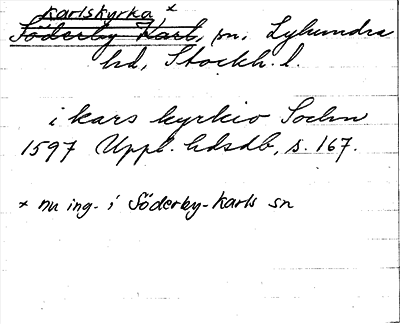 Karlskyrka, *
Söderby Karl, sn, Lyhundra
hd, Stockh. l.
i kars kyrkio Sochn
1597 Uppl. hdsdb, s. 167.
* nu ing. i Söderby-Karls sn